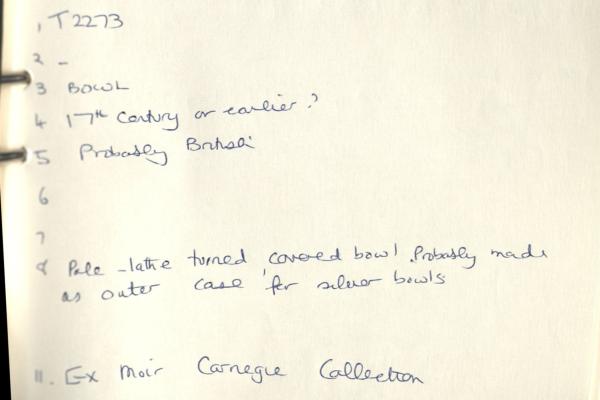 1 T2273
2 -
3 BOWL
4 17th Century or earlier?
5 Probably British
6
7
8 Pole-lathe turned 'covered bowl'. Probably made
as outer case for silver bowls
11. Ex Moir Carnegie Collection